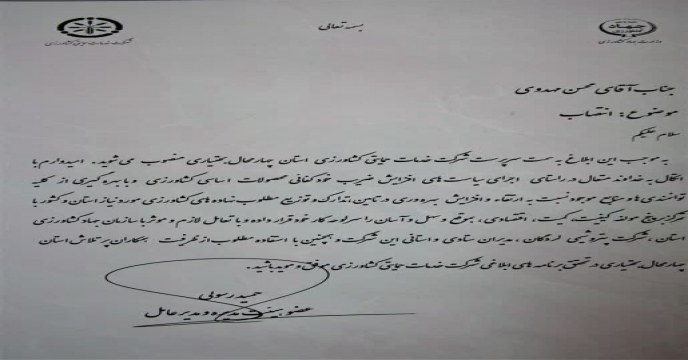 بسمه تعالی
وزارت جهاد کشاورزی
شرکت خدمات حمایتی کشاورزی
جناب آقای محسن مهدوی
موضوع: انتصاب
سلام علیکم
به موجب این ابلاغ به سمت سرپرست شرکت خدمات حمایتی کشاورزی استان چهارمحال بختیاری منصوب می شوید. امیدوارم با
اتکال به خداوند متعال در راستای اجرای سیاست های افزایش ضریب خودکفائی محصولات اساسی کشاورزی و با بهره گیری از کلیه
توانمندی ها و منابع موجود نسبت به ارتقاء و افزایش بهره وری در تامین، تدارک و توزیع مطلوب نهاده های کشاورزی مورد نیاز استان و کشور با
تمرکز بر پنج مولفه کیفیت، کمیت، اقتصادی، بموقع و سهل و آسان را سرلوحه کار خود قرار داده و با تعامل لازم و موثر با سازمان جهاد کشاورزی
استان، شرکت پتروشیمی لردگان، مدیران ستادی و استانی این شرکت و همچنین با استفاده مطلوب از ظرفیت همکاران پرتلاش استان
چهارمحال بختیاری در تحقق برنامه های ابلاغی شرکت خدمات حمایتی کشاورزی موفق و موید باشید.
حمید رسولی
عضو هیئت مدیره و مدیرعامل